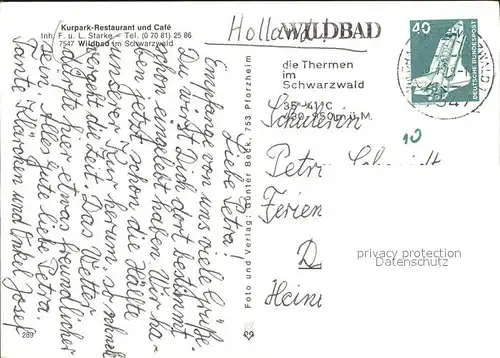 Kurpark-Restaurant und Café
Inh. F. u. L. Starke – Tel. (0 70 81) 25 86
7547 Wildbad im Schwarzwald
Liebe Petra!
Empfange von uns viele Grüße.
Du wirst Dich dort bestimmt
schon eingelebt haben. Wir ha-
ben jetzt schon die Hälfte
unserer Kur herum, so schnell
vergeht die Zeit. Das Wetter
dürfte hier etwas freundlicher
sein. Alles gute liebe Petra.
Tante Klärchen und Onkel Josef
289
Foto und Verlag: Günter Beck, 753 Pforzheim
Holland!
WILDBAD
die Thermen
im
Schwarzwald
35°-41°C
430-950m ü.M.
40
DEUTSCHE BUNDESPOST
10
Schülerin
Petra
Ferien
D
Heim
privacy protection
www.ansichtskarten-center.de